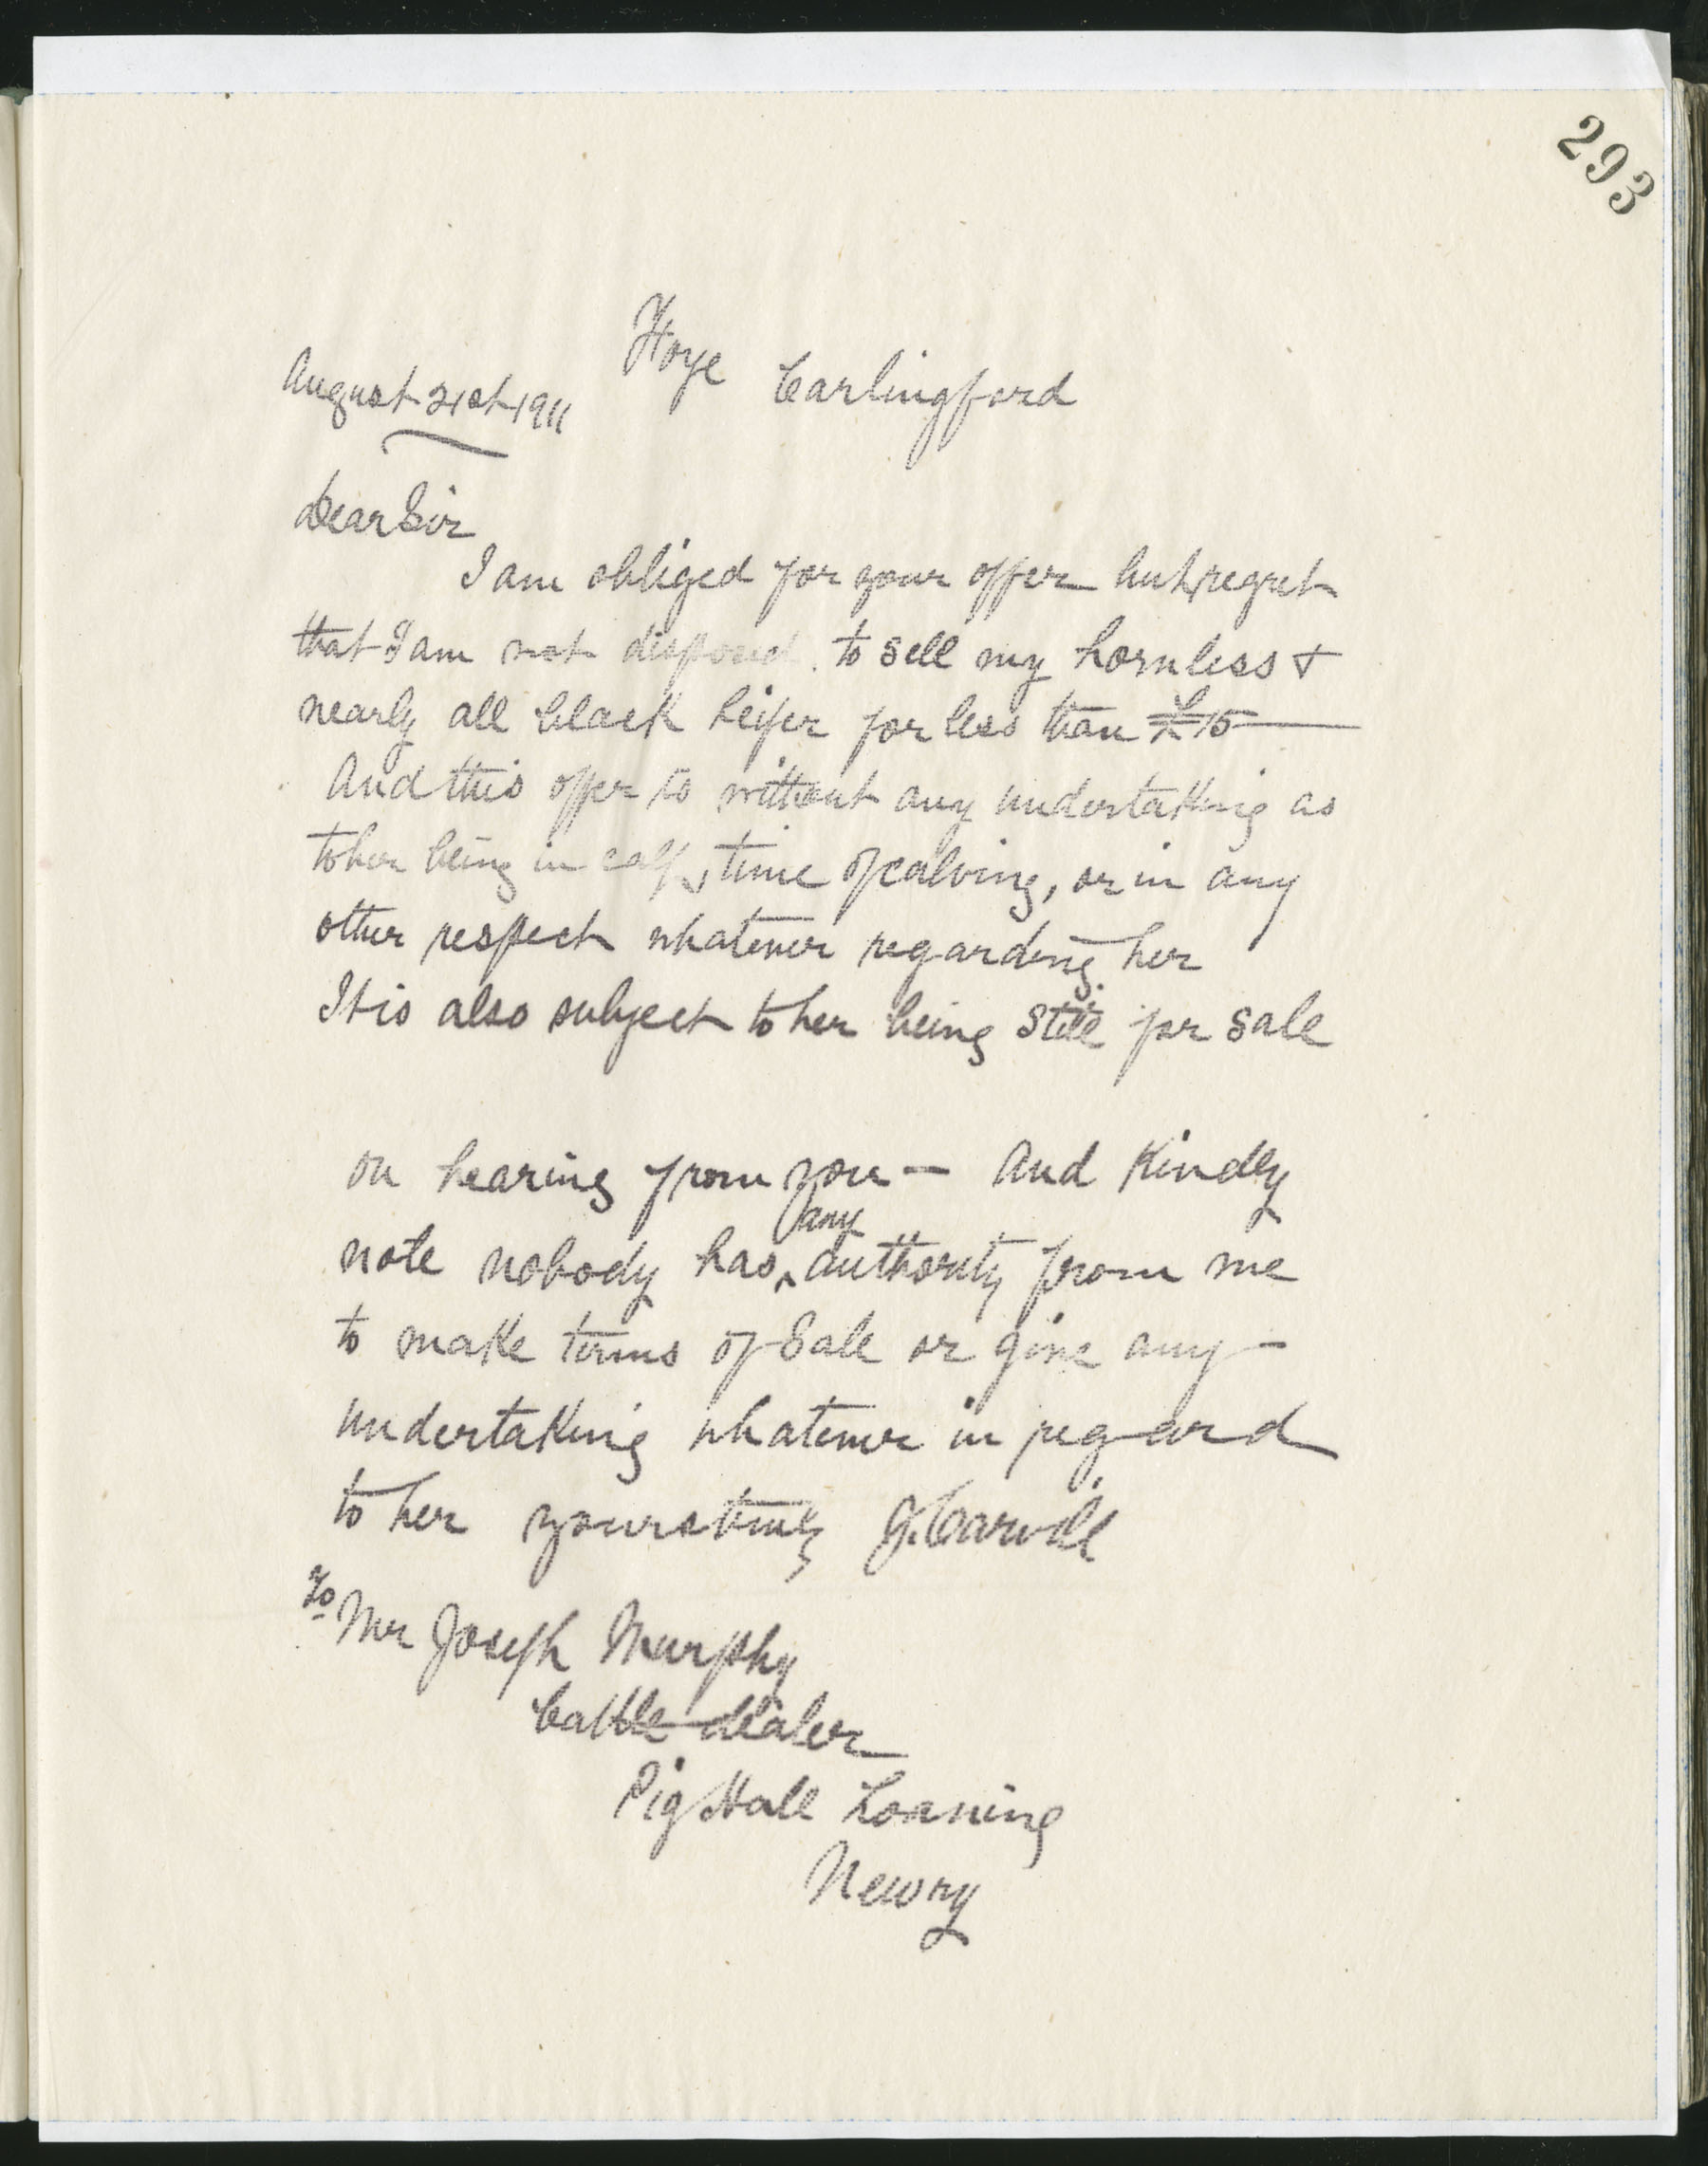 293
Hoye Carlingford
August 21st 1911
Dear Sir
I am obliged for your offer but regret
that I am not disposed to sell my hornless &
nearly all black heifer for less than £15
And this offer is without any undertaking as
to her being in calf, time of calving, or in any
other respect whatever regarding her
It is also subject to her being still for sale
on hearing from you — And Kindly
note nobody has any authority from me
to make terms of Sale or give any
undertaking whatever in regard
to her yours truly J. Carvill
To Mr Joseph Murphy
Cattle dealer
Pig Hall Loaning
Newry